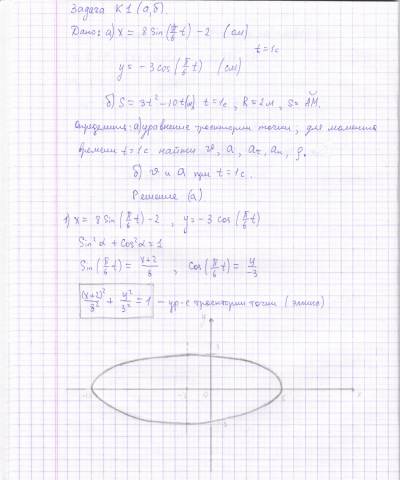 Задача К1 (а,б).
Дано: а) x = 8 sin(π/6 t) − 2 (см)
t = 1c
y = −3 cos(π/6 t) (см)
б) S = 3t² − 10t(м) t = 1c, R = 2м, S = AM.
Определить: а) уравнение траектории точки, для момента
времени t = 1c найти v, a, aτ, an, ρ.
б) v и a при t = 1c.
Решение (а)
1) x = 8 sin(π/6 t) − 2, y = −3 cos(π/6 t)
Sin²α + Cos²α = 1
Sin(π/6 t) = x+2/8, Cos(π/6 t) = y/−3
(x+2)²/8² + y²/3² = 1 – ур-е траектории точки (эллипс)
y
3
-2 0 6 x
-3